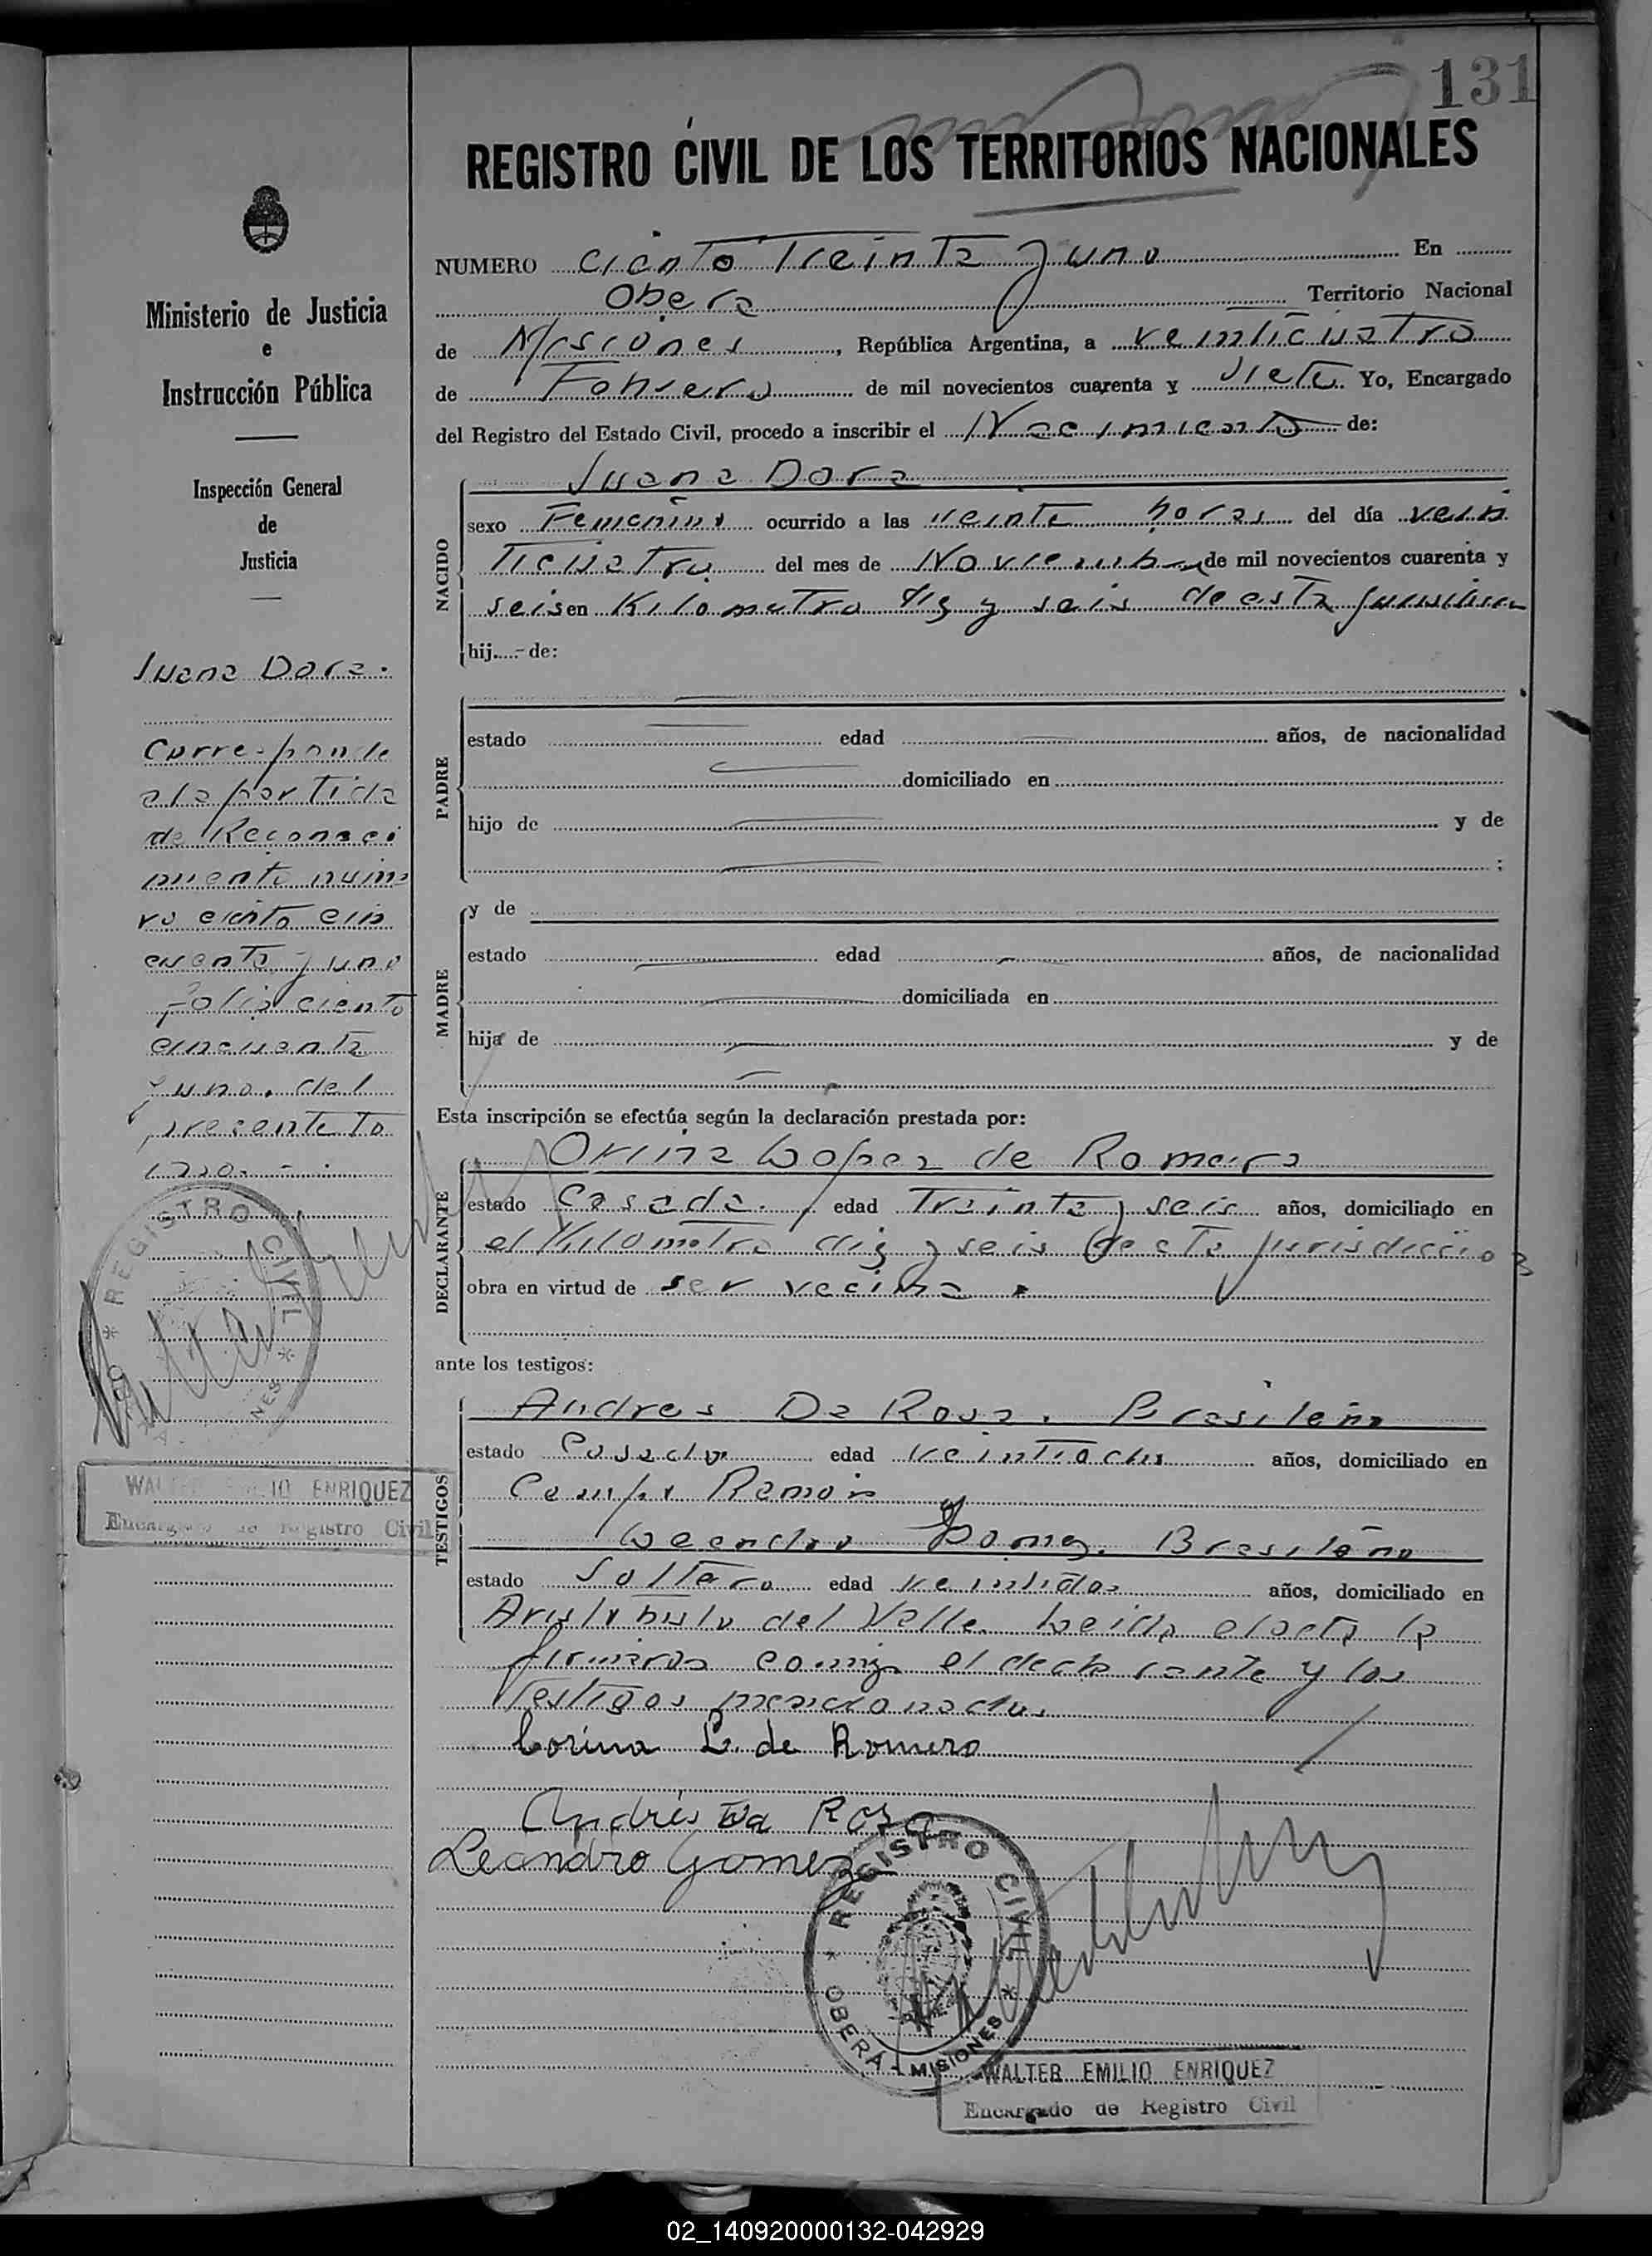 131
REGISTRO CIVIL DE LOS TERRITORIOS NACIONALES
NUMERO ciento Treinta y uno En
Obera Territorio Nacional
de Misiones, República Argentina, a veinticuatro
de Febrero de mil novecientos cuarenta y siete Yo, Encargado
del Registro del Estado Civil, procedo a inscribir el Nacimiento de:
Juana Dora
NACIDO
sexo Femenino ocurrido a las veinte horas del día vein
ticuatro del mes de Noviembre de mil novecientos cuarenta y
seis en Kilometro diez y seis de esta
hij....- de:
PADRE
estado edad años, de nacionalidad
domiciliado en
hijo de y de
;
y de
MADRE
estado edad años, de nacionalidad
domiciliada en
hija de y de
Esta inscripción se efectúa según la declaración prestada por:
Lopez de Romero
DECLARANTE
estado Casada. edad Treinta y seis años, domiciliado en
el Kilometro diz y seis de esta jurisdiccion
obra en virtud de ser vecina
ante los testigos:
TESTIGOS
Andres Da Rosa. Brasileño
estado Casado edad veintiocho años, domiciliado en
Campo Ramon
y
Leandro Gomez. Brasileño
estado Soltero edad veintidos años, domiciliado en
Aristobulo del Valle. Leida el acta la
firmaron conmigo el declarante y los
Testigos mencionados
Corina L. de Romero
Andrés Da Rosa
Leandro Gomez
REGISTRO CIVIL
OBERÁ - MISIONES
WALTER EMILIO ENRIQUEZ
Encargado de Registro Civil
Ministerio de Justicia
e
Instrucción Pública
Inspección General
de
Justicia
Juana Dora.
Corresponde
a la partida
de Reconoci
miento nume
ro ciento cin
cuenta y uno
Folio ciento
cincuenta
y uno. del
presente to
mo. - .
REGISTRO CIVIL
WALTER EMILIO ENRIQUEZ
Encargado de Registro Civil
02_140920000132-042929